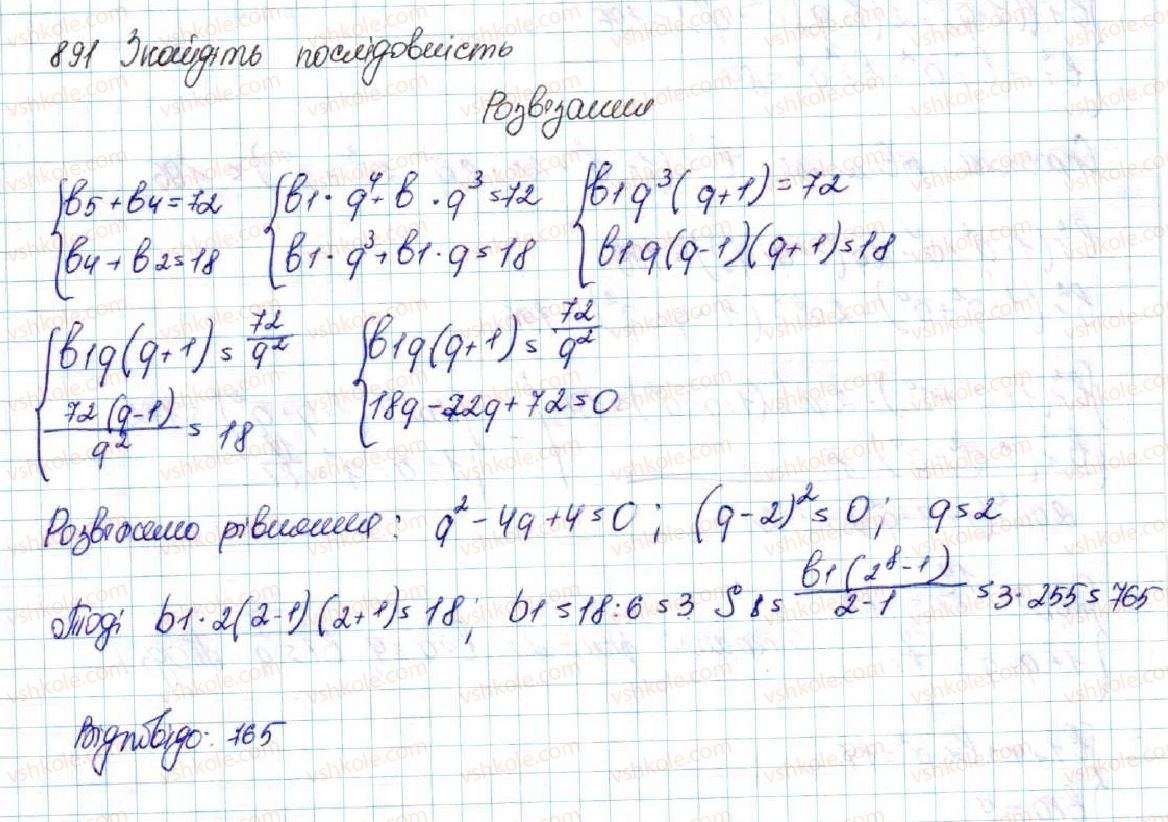 891 Знайдіть послідовність
Розвязання
{b5+b4=72 {b1·q⁴+b·q³=72 {b1q³(q+1)=72
{b4+b2=18 {b1·q³+b1·q=18 {b1q(q-1)(q+1)=18
{b1q(q+1)=72/q² {b1q(q+1)=72/q²
{72(q-1)/q²=18 {18q-72q+72=0
Розвяжемо рівняння: q²-4q+4=0; (q-2)²=0; q=2
Тоді b1·2(2-1)(2+1)=18; b1=18:6=3 S8=b1(2⁸-1)/2-1=3·255=765
Відповідь: 765